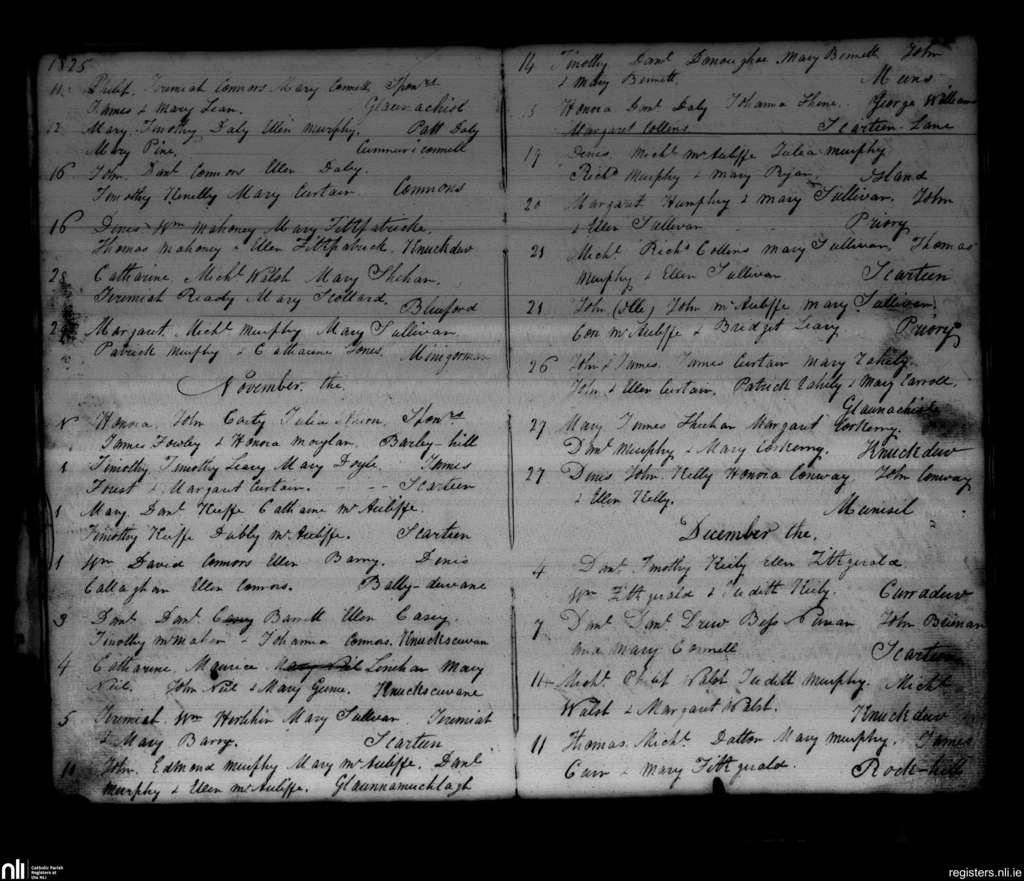 1825
11 Philip, Jeremiah Connors Mary Connell Spon.rs
James & Mary Lean. Glaunachist
12 Mary, Timothy Daly Ellen Murphy. Patt Daly
Mary Pine. Cummericonnell
16 John. Danl Connors Ellen Daly.
Timothy Kenelly Mary Curtain Commons
16 Dinis Wm Mahoney Mary Fitzpatricke
Thomas Mahoney Ellen Fitzpatrick. Knuckduv
28 Catharine Michl Walsh Mary Shehan.
Jeremiah Ready Mary Scollard. Bluford
Margaret. Michl Murphy Mary Sullivan
Patrick Murphy & Catharine Jones. Minigorman
November the.
Honora. John Carty Julia Spon.rs
James Fowley & Honora Barley-hill
1 Timothy. Timothy Leary Mary Doyle. James
Foust & Margaret Curtain. - - - Scarteen
1 Mary. Danl Keiffe Cathame McAuliffe.
Timothy Keiffe Dubly McAuliffe. Scarteen
1 Wm David Connors Ellen Barry. Dinis
Callaghan Ellen Connors. Bally-duvane
3 Danl Danl Barrett Ellen Casey.
Timothy Johanna Connors. Knuckscuvan
4 Catharine. Maurice Linehan Mary
Neil. John Neil & Mary Knuckscuvane
5 Jeremiah. Wm Mary Sullivan. Jeremiah
& Mary Barry. Scarteen
John. Edmond Murphy Mary McAuliffe. Danl
Murphy & Ellen McAuliffe. Glaunnamucklagh
14 Timothy Danl Donoughoe Mary Bennett John
& Mary Bennett. Meens
Honora Danl Daly Johanna Shine. George William
Margaret Collins Scarteen-Lane
19 Dinis. Michl McAuliffe Julia Murphy
Richd Murphy & Mary Ryan. Island
20 Margaret Humphry & Mary Sullivan. John
& Ellen Sullivan - - - Priory
21 Michl Richd Collins Mary Sullivan. Thomas
Murphy & Ellen Sullivan Scarteen
21 John John McAuliffe Mary Sullivan.
Con McAuliffe & Bridget Leary Priory
26 John & James. James Curtain Mary Lahily.
John & Ellen Curtain. Patrick Lahily & Mary Carroll.
Glaunachist
27 Mary James Sheehan Margaret Corkerry.
Danl Murphy & Mary Corkerry. Knuckduv
27 Dinis John Kelly Honora Conway John Conway
& Ellen Kelly. Munisil
December the.
4 Danl Timothy Keily Ellen Fitzgerald
Wm Fitzgerald & Judith Keily. Curraduv
7 Danl Danl Drew Bess John
and Mary Connell Scarteen
11 Michl Walsh Judith Murphy. Michl
Walsh & Margaret Walsh. Knuckduv
11 Thomas. Michl Dalton Mary Murphy. James
Curr & Mary Fitzgerald. Rock-hill
nli Catholic Parish
Registers at
the NLI
registers.nli.ie